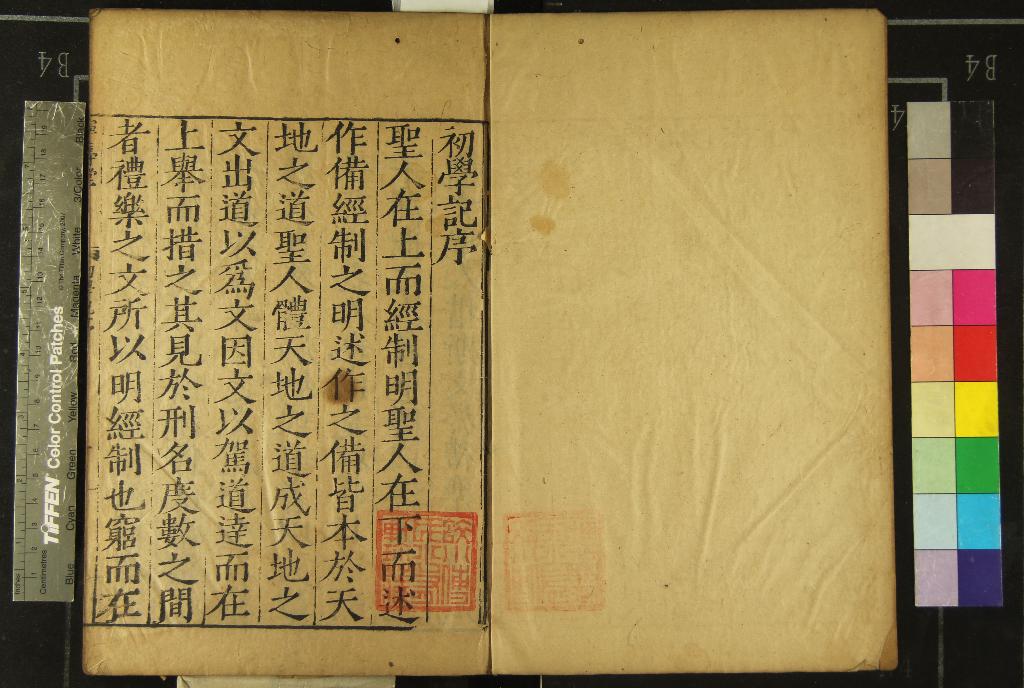 初學記序
聖人在上而經制明聖人在下而述
作備經制之明述作之備皆本於天
地之道聖人體天地之道成天地之
文出道以爲文因文以駕道達而在
上舉而措之其見於刑名度數之間
者禮樂之文所以明經制也窮而在
B4
B4
TIFFEN Color Control Patches
© The Tiffen Company, 2007
Inches
Centimetres
Blue
Cyan
Green
Yellow
Red
Magenta
White
3/Color
Black